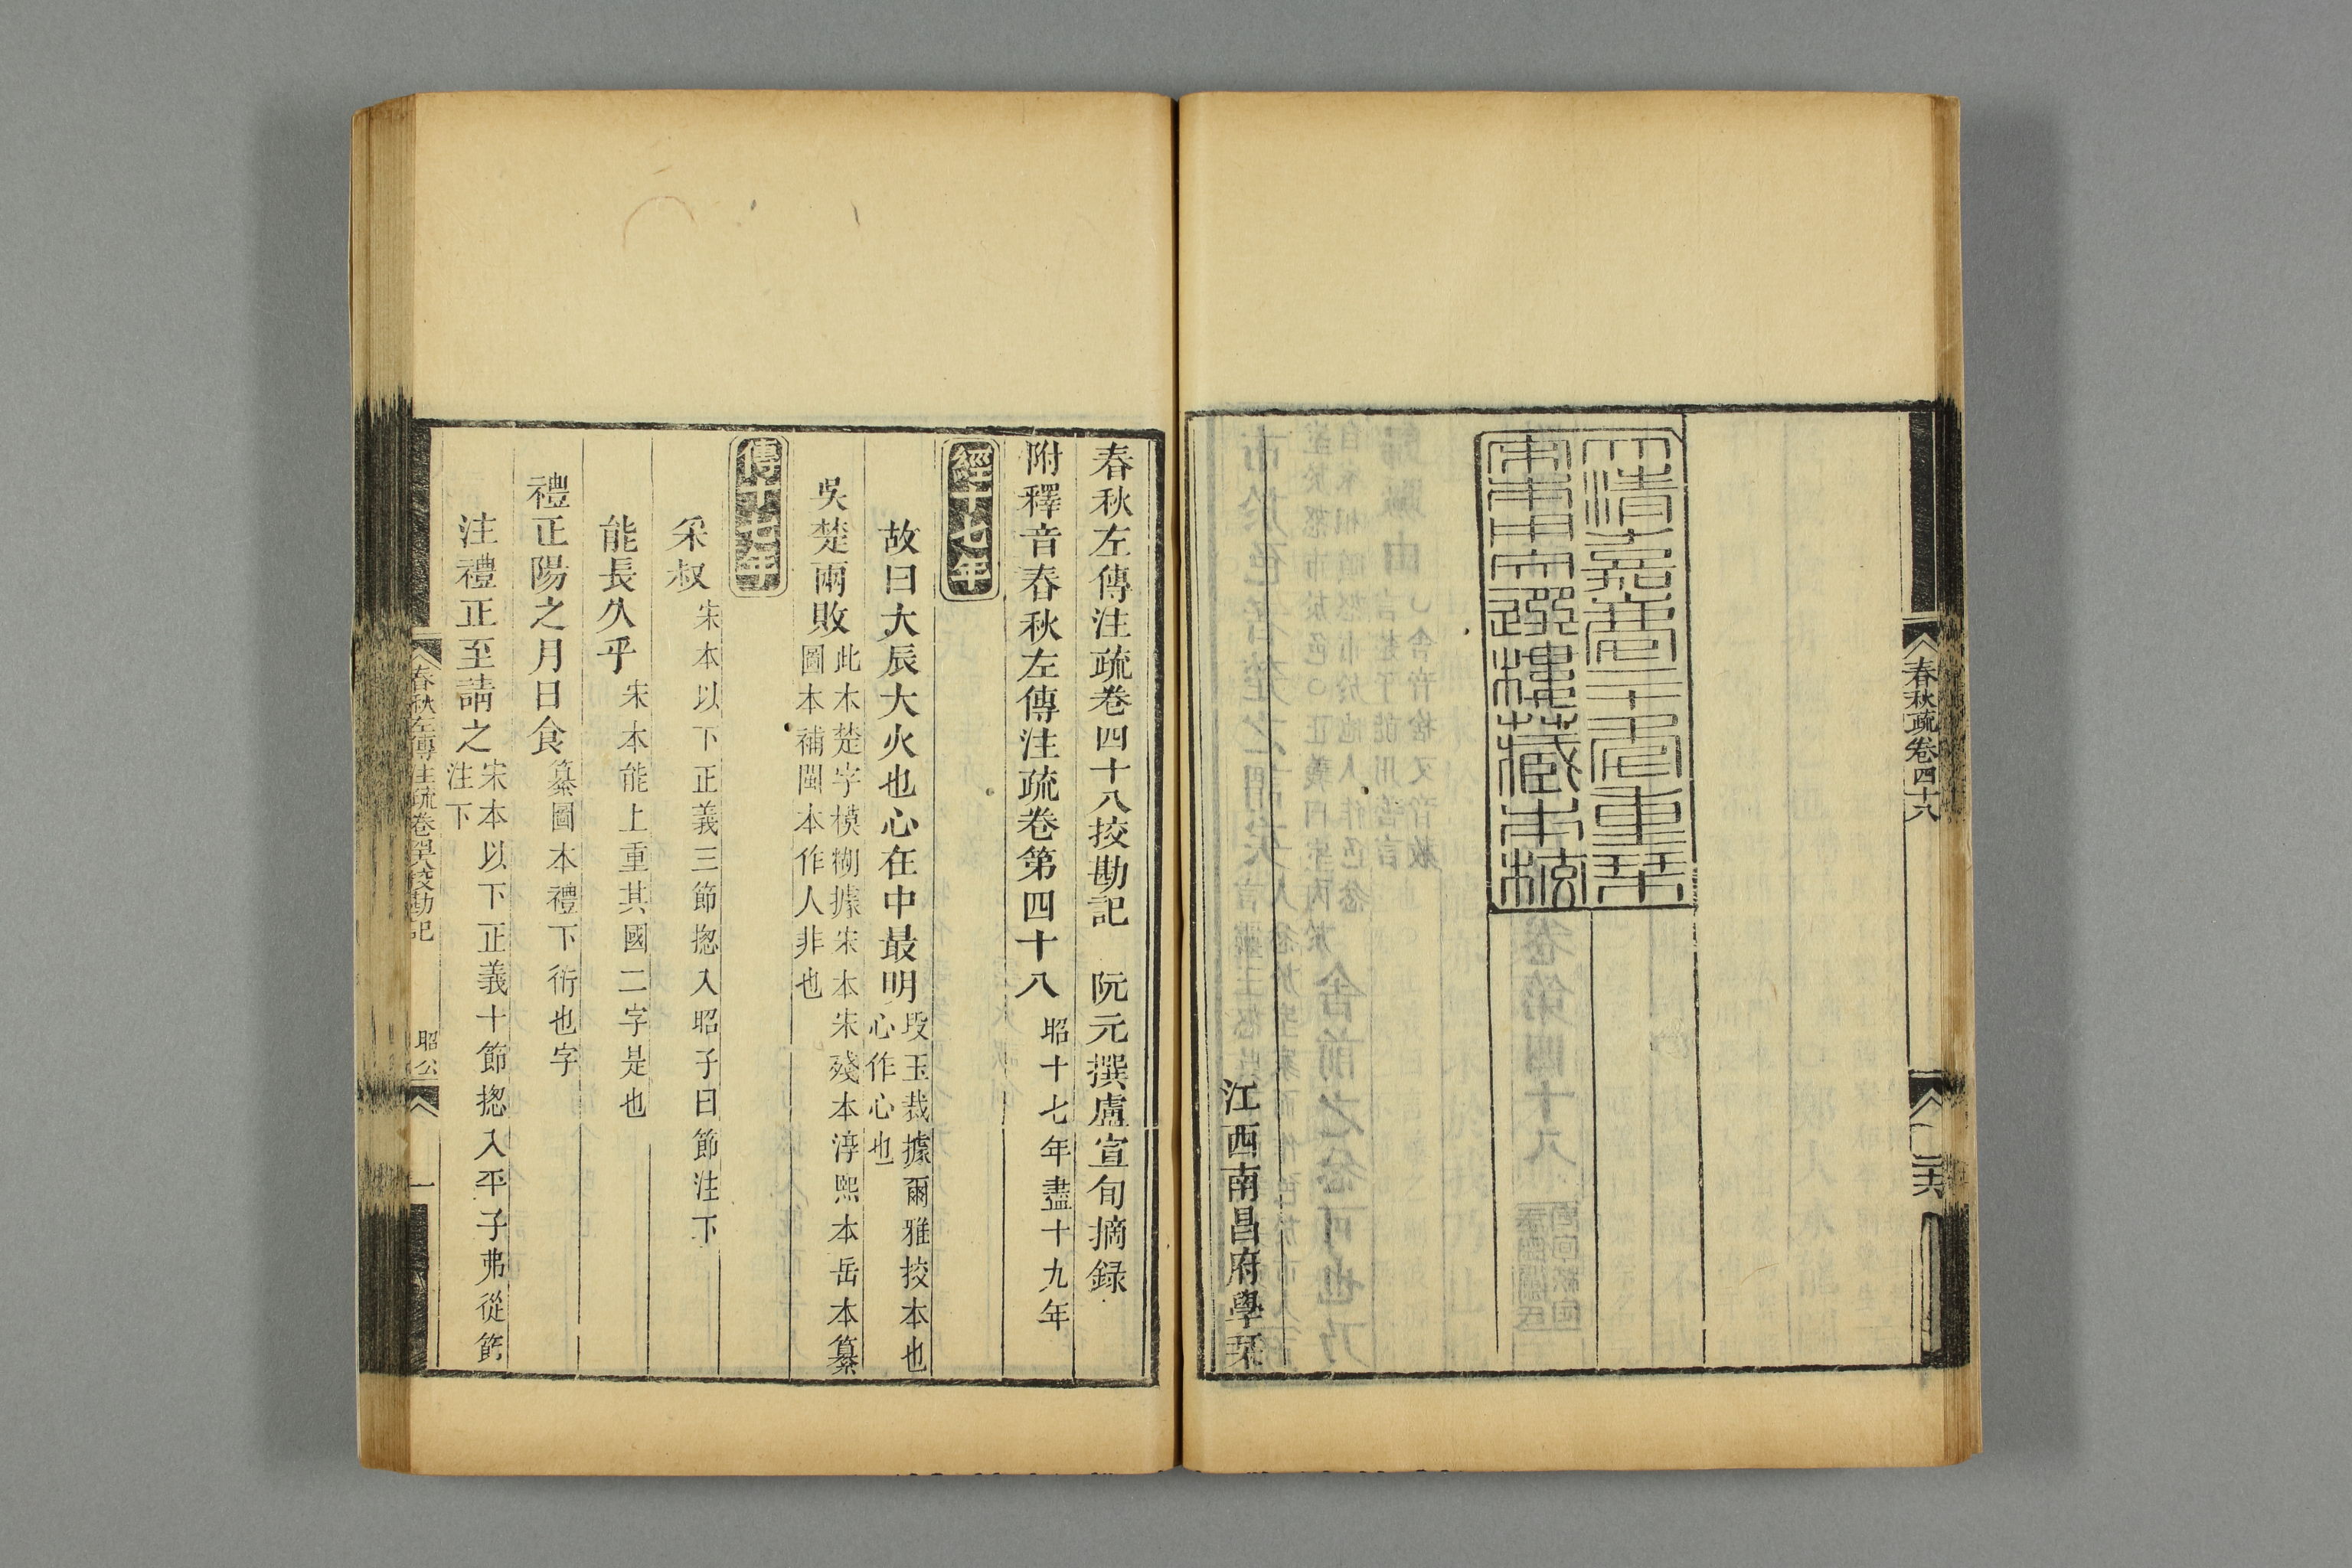 春秋疏卷四十八
大清嘉慶二十年重栞
宋本用文選樓藏本校
江西南昌府學栞
春秋左傳注疏卷四十八挍勘記 阮元撰盧宣旬摘録
附釋音春秋左傳注疏卷第四十八 昭十七年盡十九年
經十七年
故曰大辰大火也心在中最明 段玉裁據爾雅挍本也
心作心也
吳楚兩敗 此木楚字模糊據宋本宋殘本淳熙本岳本纂
圖本補閩本作人非也
傳十七年
采叔 宋本以下正義三節揔入昭子曰節注下
能長久乎 宋本能上重其國二字是也
禮正陽之月日食 纂圖本禮下衍也字
注禮正至請之 宋本以下正義十節揔入平子弗從節
注下
春秋左傳注疏卷四八挍勘記 昭公 一